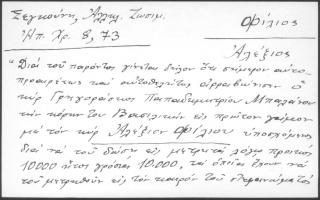 Σεγκούνη, Αλεκ. Ζωσιμ. Φίλιος
Ηπ. Χρ. 8, 73
Αλέξιος
"Διά του παρόντος γίνεται δήλον ότι σήμερον αυτο-
προαιρέτως και αυτοθελήτως αρραβώνισεν ο
κύρ Γρηγοράσκος Παπαδημητρίου Μπαλάνου
την κόρην του Βασιλικήν εις πρώτον γάμον
με τον κύρ Αλέξιον Φίλιου υποσχόμενος
διά να του δώση εις μετρητά λόγω προικός
10.000 ήτοι γρόσια 10.000, τα οποία έχουν να
του μετρηθούν εις τον καιρόν του στεφανώματος